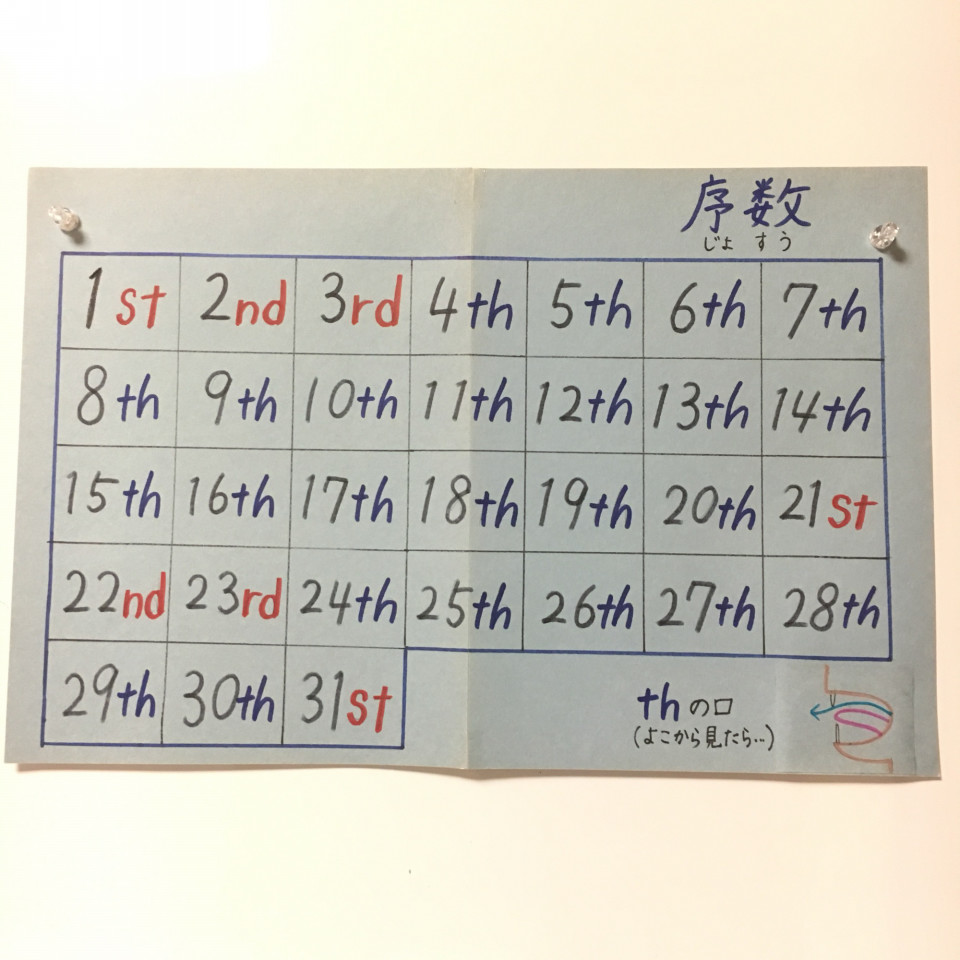 序数
じょ すう
1st 2nd 3rd 4th 5th 6th 7th
8th 9th 10th 11th 12th 13th 14th
15th 16th 17th 18th 19th 20th 21st
22nd 23rd 24th 25th 26th 27th 28th
29th 30th 31st
thの口
(よこから見たら...)